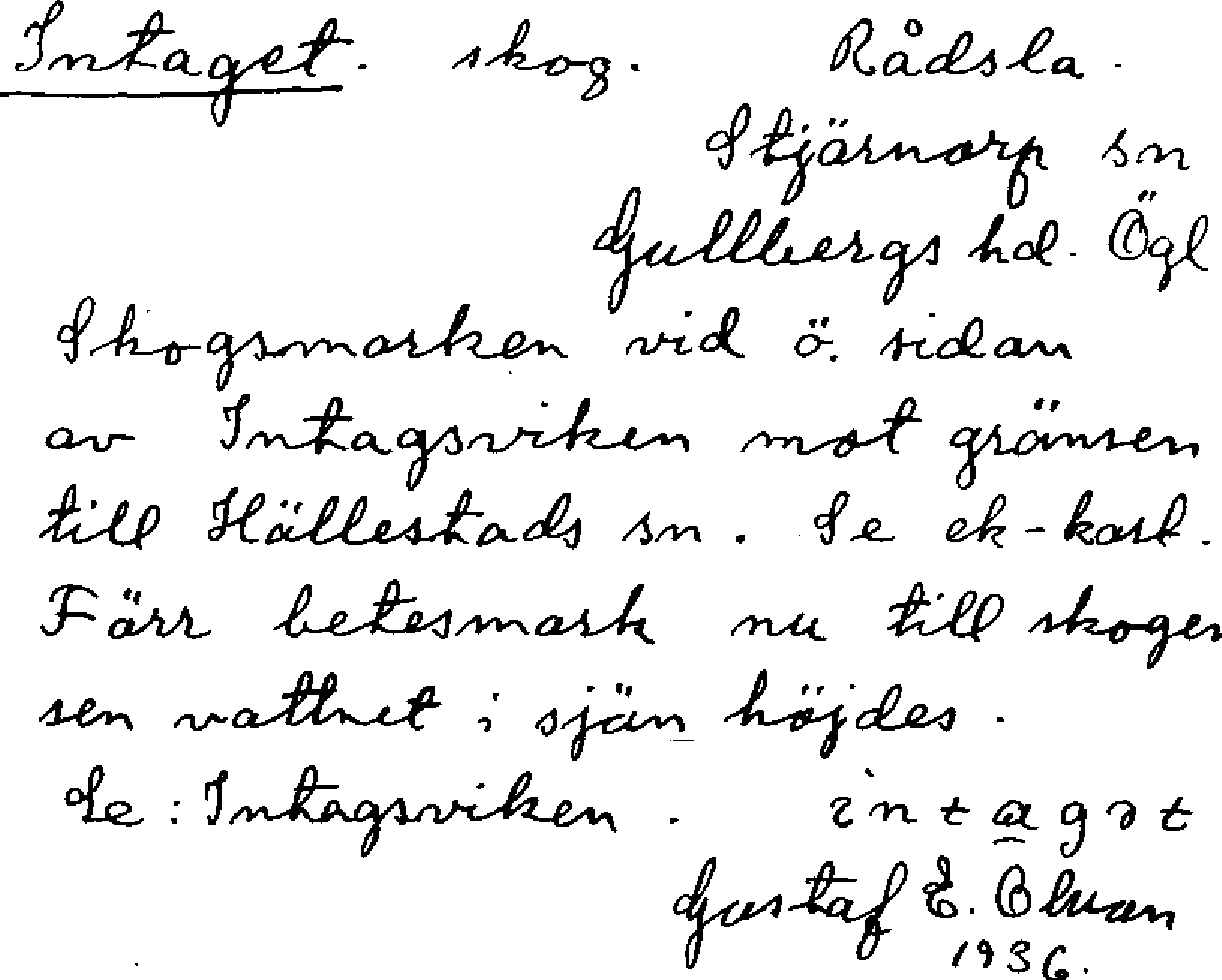 Intaget. skog. Rådsla.
Stjärnorp sn
Gullbergs hd. Ögl
Skogsmarken vid ö. sidan
av Intagsviken mot gränsen
till Hällestads sn. Se ek-kart.
Förr betesmark nu till skogen
sen vattnet i sjön höjdes.
Se: Intagsviken. intagət
Gustaf E.
1936.